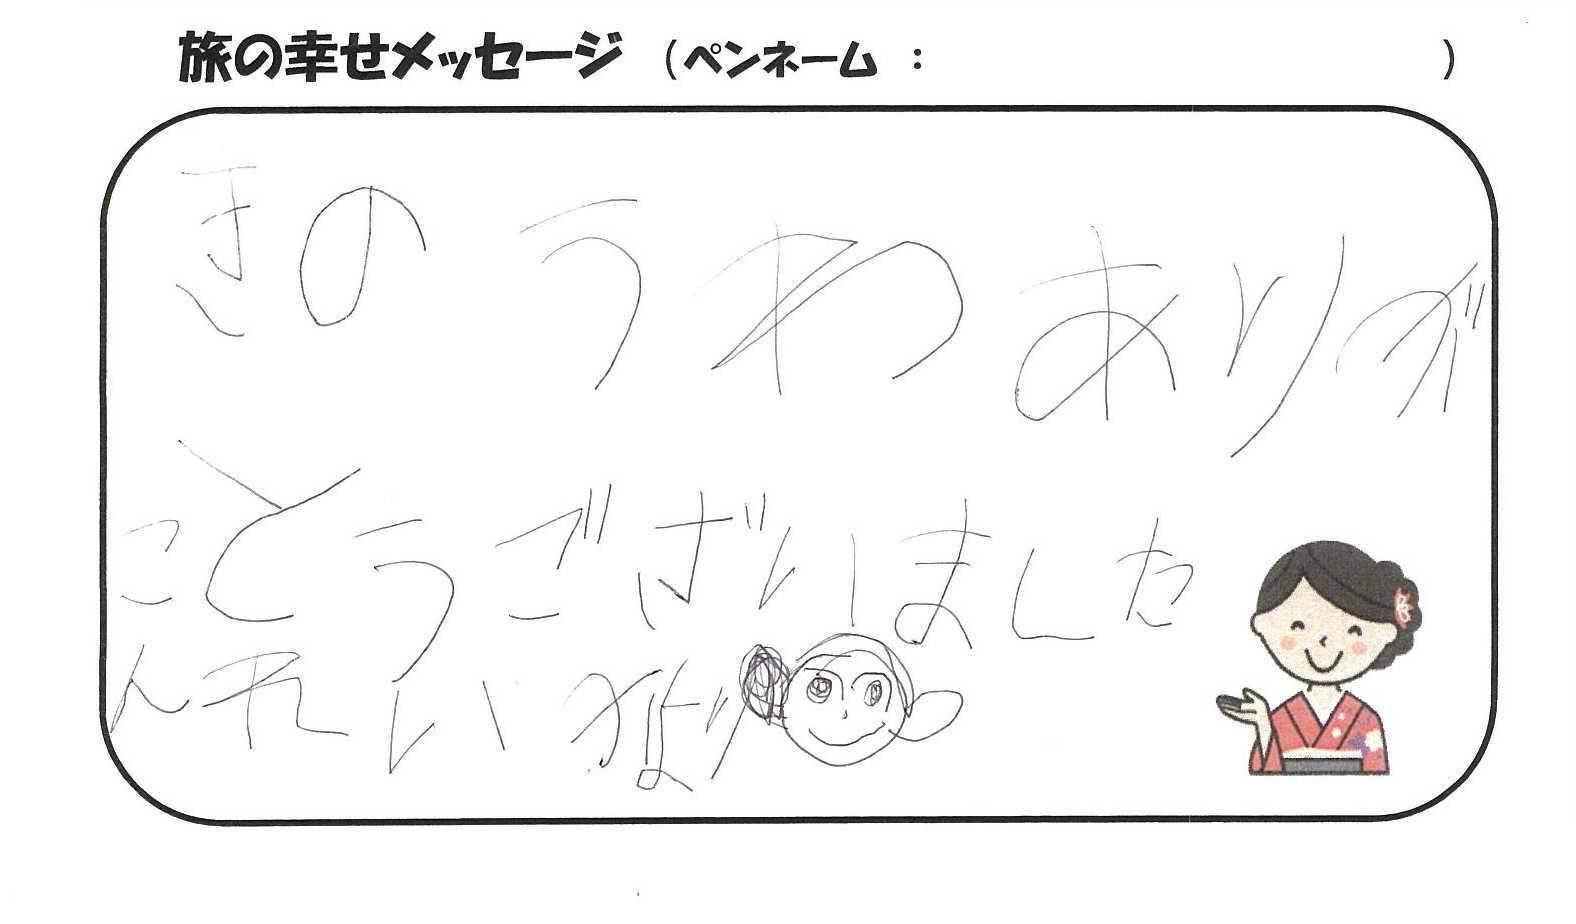 旅の幸せメッセージ (ペンネーム : )
きのうわありが
とうございました
れいな